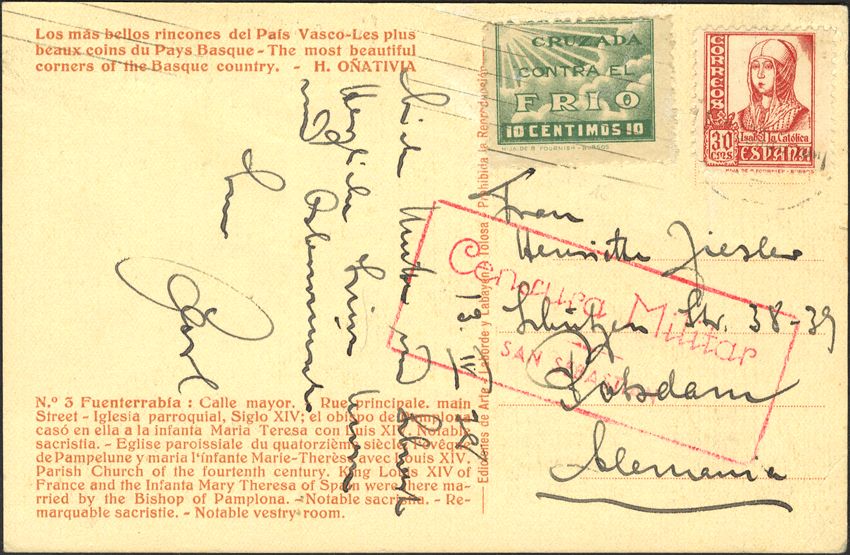 Los más bellos rincones del País Vasco-Les plus
beaux coins du Pays Basque - The most beautiful
corners of the Basque country. - H. OÑATIVIA
CRUZADA
CONTRA EL
FRIO
10 CENTIMOS 10
HIJA DE B. FOURNIER - BURGOS
CORREOS
30
CMS
Isabel la Católica
ESPAÑA
HIJA DE B. FOURNIER - BURGOS
Frau
Henriette Ziesler
Schützen Str. 38-39
Potsdam
Alemania
Censura Militar
SAN SEBASTIAN
Ediciones de Arte - Laborde y Labayen - Tolosa - Prohibida la Reproducción
13. IV.
Liebe Mutter
N.º 3 Fuenterrabía : Calle mayor. - Rue principale. main
Street - Iglesia parroquial, Siglo XIV; el obispo de Pamplona
casó en ella a la infanta Maria Teresa con Luis XIV. Notable
sacristia. - Eglise paroissiale du quatorzième siècle, l'evêque
de Pampelune y maria l'infante Marie-Therèse avec Louis XIV.
Parish Church of the fourtenth century. King Louis XIV of
France and the Infanta Mary Theresa of Spain were there ma-
rried by the Bishop of Pamplona. - Notable sacristia. - Re-
marquable sacristie. - Notable vestry-room.